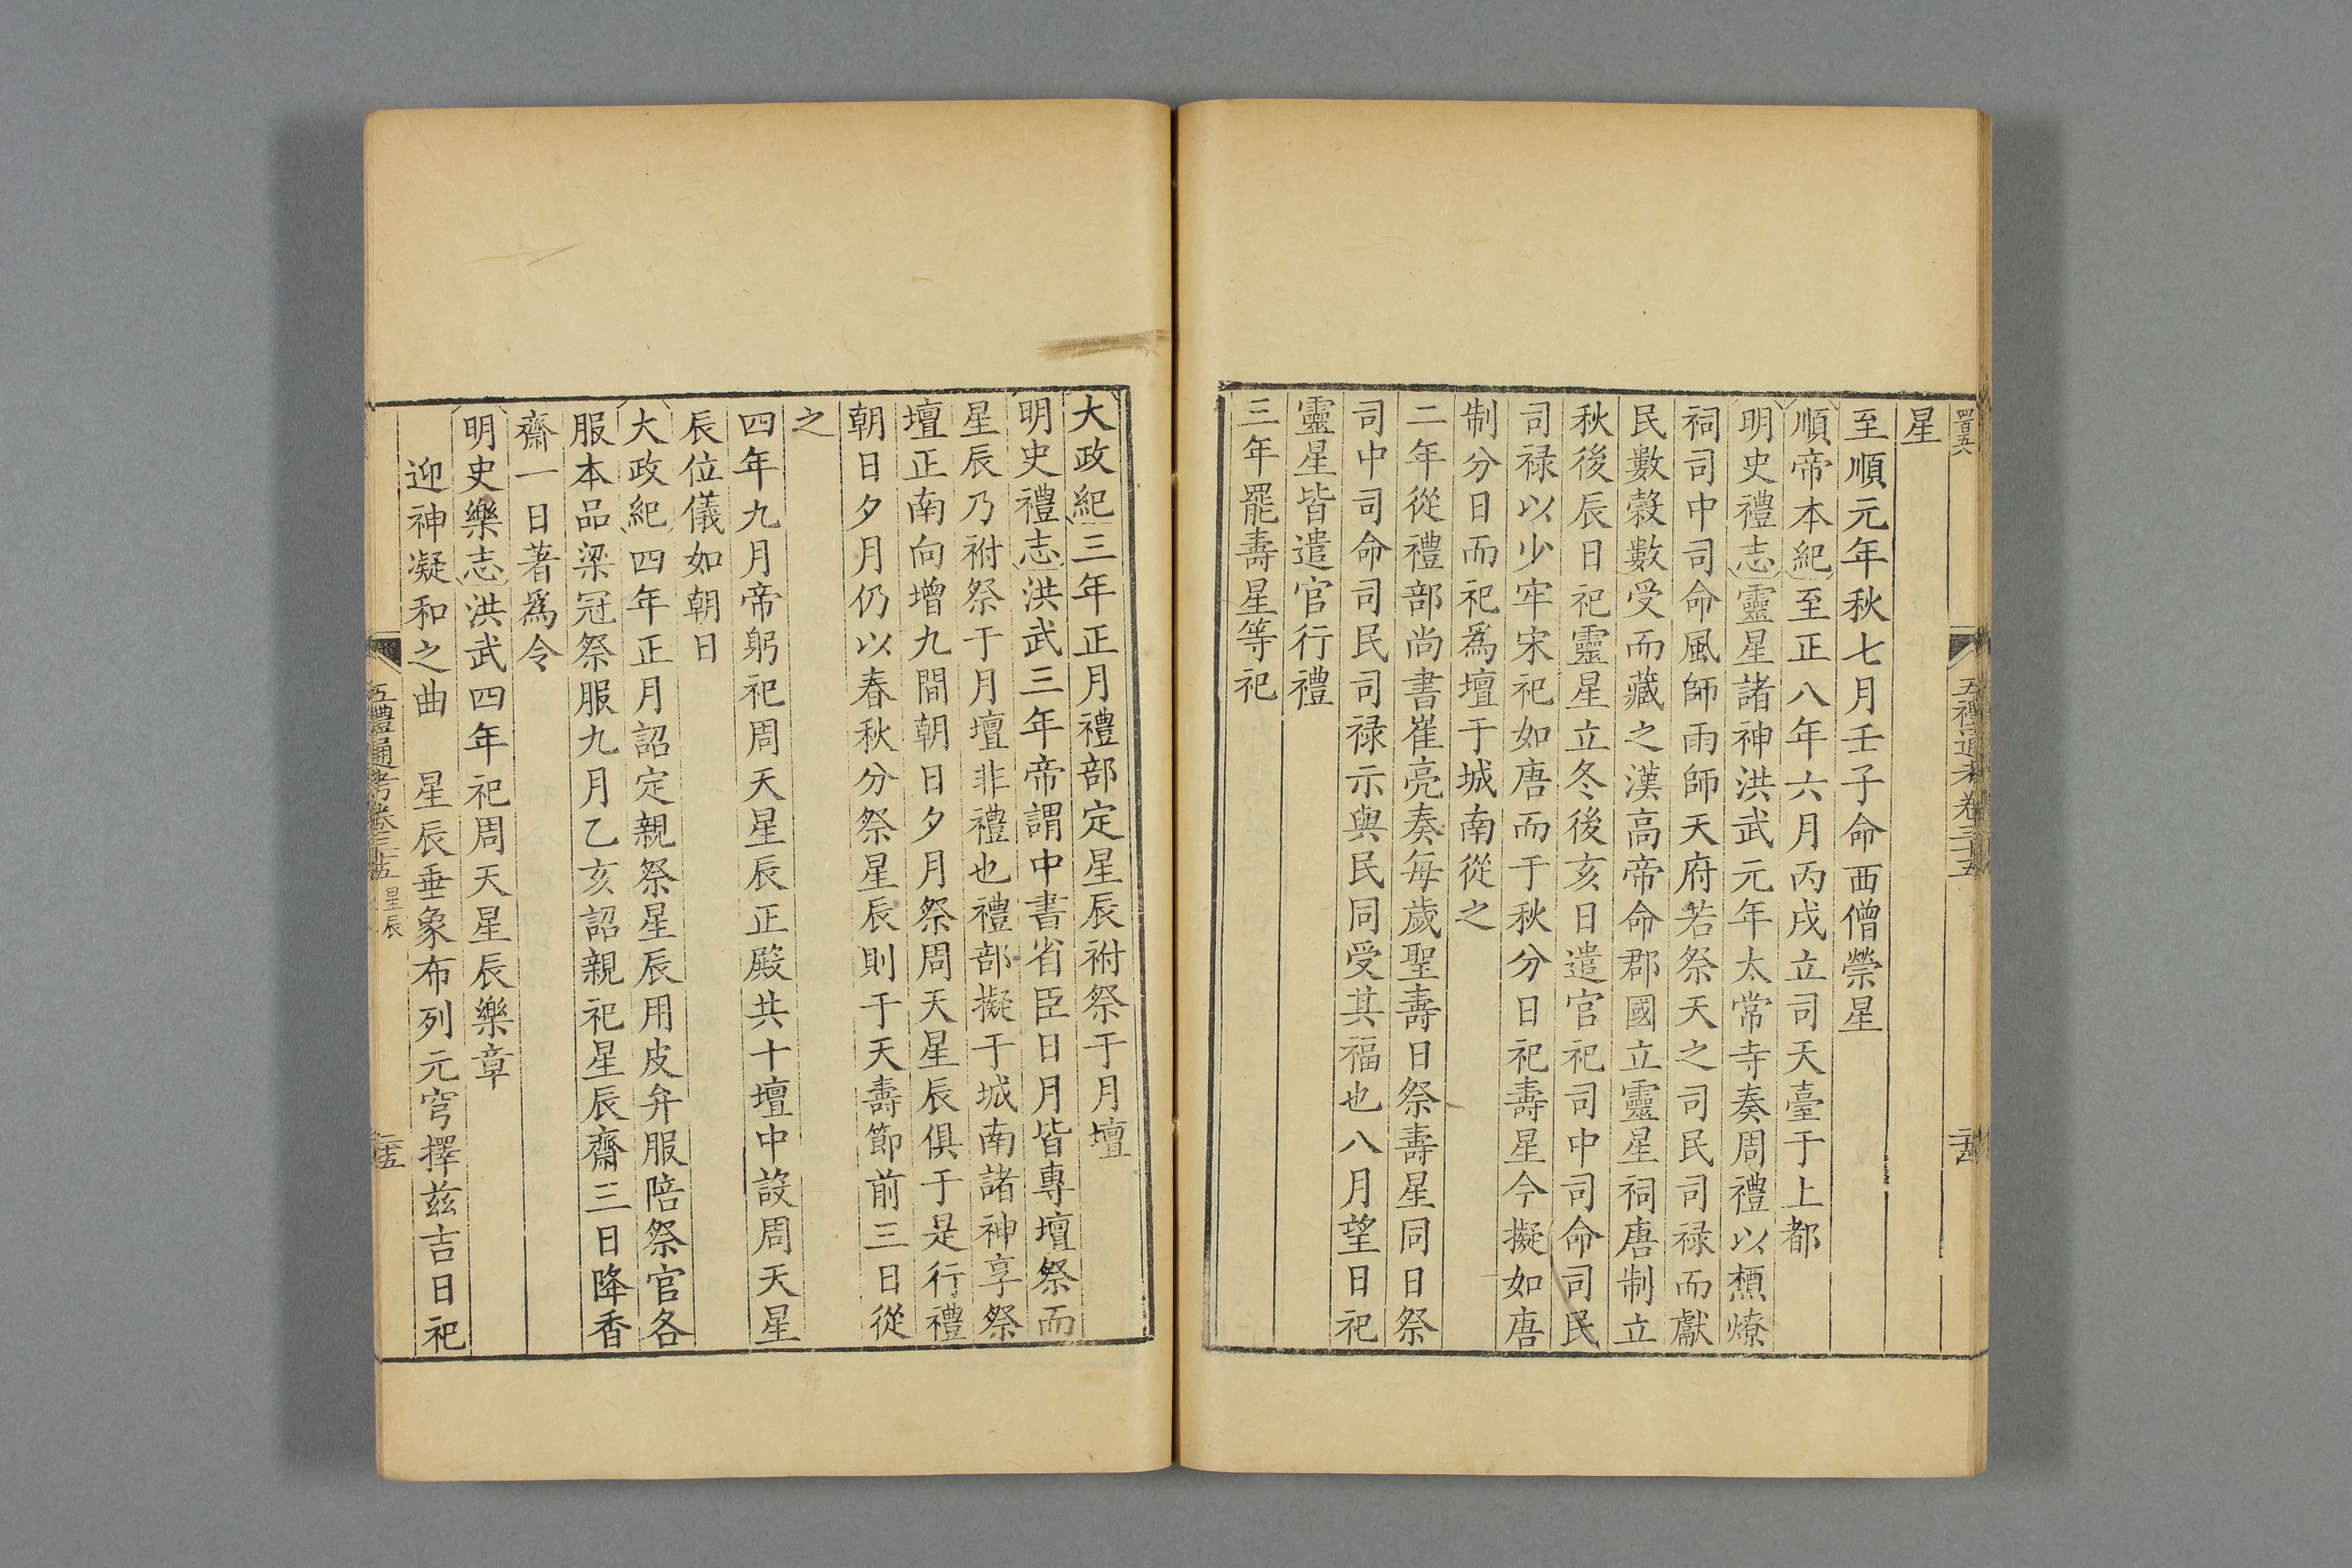 星
至順元年秋七月壬子命西僧禜星
順帝本紀至正八年六月丙戌立司天臺于上都
明史禮志靈星諸神洪武元年太常寺奏周禮以槱燎
祠司中司命風師雨師天府若祭天之司民司禄而獻
民數穀數受而藏之漢高帝命郡國立靈星祠唐制立
秋後辰日祀靈星立冬後亥日遣官祀司中司命司民
司禄以少牢宋祀如唐而于秋分日祀壽星今擬如唐
制分日而祀爲壇于城南從之
二年從禮部尚書崔亮奏每歲聖壽日祭壽星同日祭
司中司命司民司禄示與民同受其福也八月望日祀
靈星皆遣官行禮
三年罷壽星等祀
大政紀三年正月禮部定星辰祔祭于月壇
明史禮志洪武三年帝謂中書省臣日月皆專壇祭而
星辰乃祔祭于月壇非禮也禮部擬于城南諸神享祭
壇正南向增九間朝日夕月祭周天星辰俱于是行禮
朝日夕月仍以春秋分祭星辰則于天壽節前三日從
之
四年九月帝躬祀周天星辰正殿共十壇中設周天星
辰位儀如朝日
大政紀四年正月詔定親祭星辰用皮弁服陪祭官各
服本品梁冠祭服九月乙亥詔親祀星辰齋三日降香
齋一日著爲令
明史樂志洪武四年祀周天星辰樂章
迎神凝和之曲　星辰垂象布列元穹擇兹吉日祀
五禮通考卷三十五 星辰